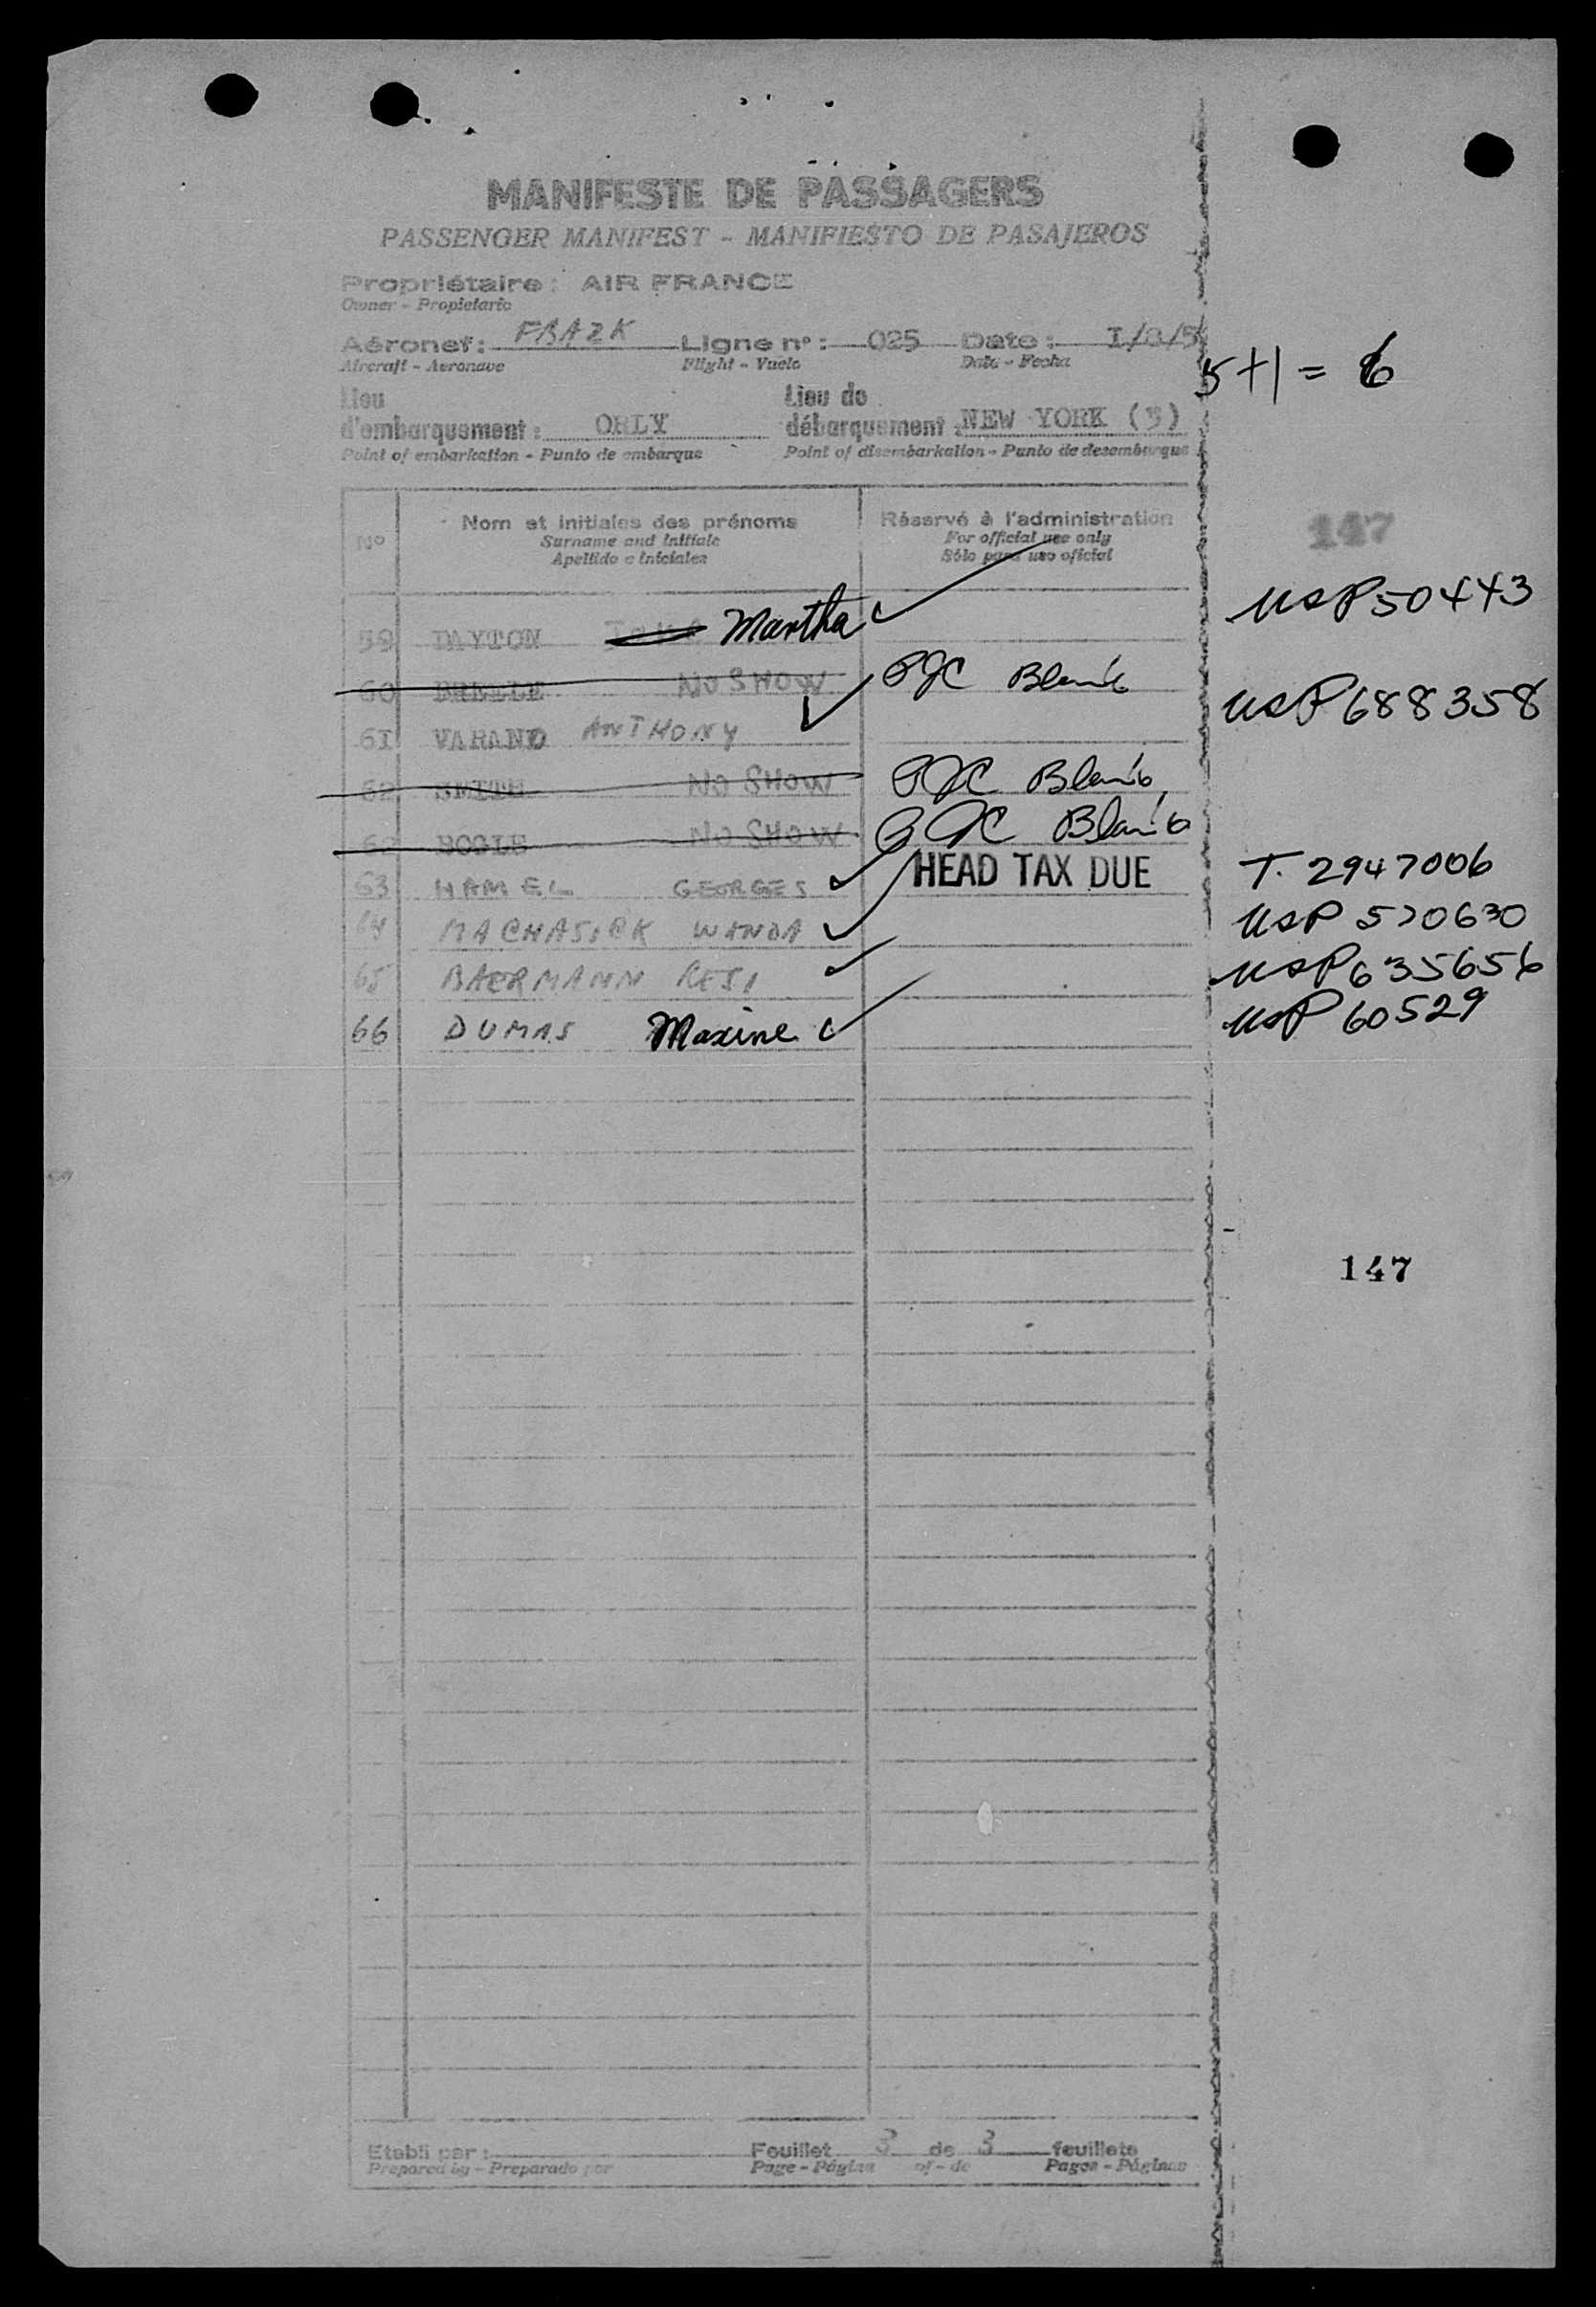 MANIFESTE DE PASSAGERS
PASSENGER MANIFEST - MANIFIESTO DE PASAJEROS
Propriétaire : AIR FRANCE
Owner - Propietario
Aéronef : FBAZK Ligne n° : 025 Date : I/8/5
Aircraft - Aeronave Flight - Vuelo Date - Fecha
5+1 = 6
Lieu d'embarquement : ORLY Lieu de débarquement : NEW YORK (3)
Point of embarkation - Punto de embarque Point of disembarkation - Punto de desembarque
N° Nom et initiales des prénoms Réservé à l'administration
Surname and initials For official use only
Apellido e iniciales Sólo para uso oficial
147
59 DAYTON Martha USP 50443
60 NO SHOW
61 VARAND ANTHONY USP 688358
62 SMITH NO SHOW
62 BOGLE NO SHOW
63 HAMEL GEORGES HEAD TAX DUE T. 2947006
64 WANDA USP 570630
65 BAERMANN RESI USP 635656
66 DUMAS Maxine USP 60529
147
Etabli par : Feuillet 3 de 3 feuillets
Prepared by - Preparado por Page - Página of - de Pages - Páginas